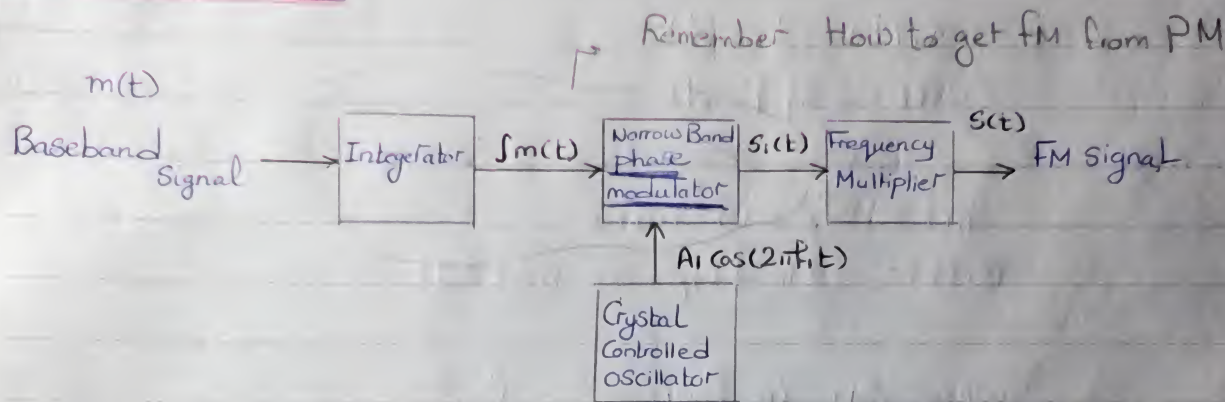 Remember How to get fM from PM
m(t)
Baseband
Signal
Integerator
∫m(t)
Narrow Band
phase
modulator
S₁(t)
Frequency
Multiplier
S(t)
FM Signal
A₁ Cos(2πf₁t)
Crystal
Controlled
OScillator